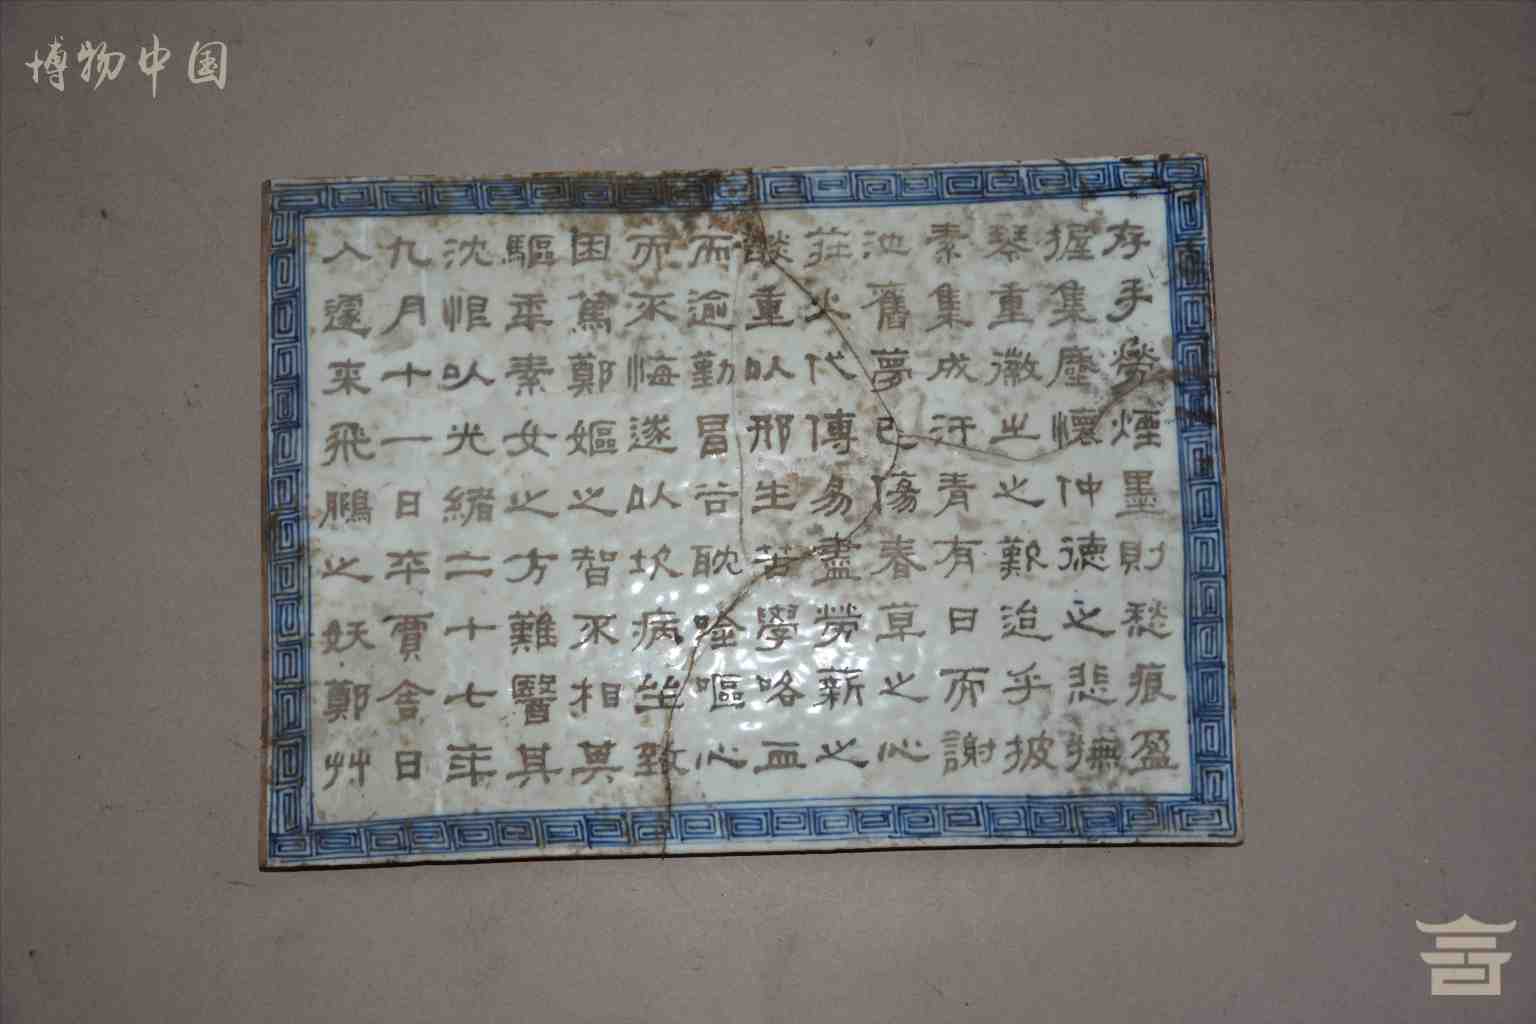 博物中国
存手勞煙墨則愁痕盈
握集塵懷仲德之悲撫
琴重徽之之歎迨乎披
素集成汗青有日而謝
池舊夢已傷春草之心
莊火代傳易盡勞薪之
談重以邢生苦學咯血
而逾勤冒谷耽唫嘔心
而不悔遂以坎病坐致
困篤鄭嫗之智不相其
驅乖素女之方難醫其
沈恨以光緒二十七年
九月十一日卒賈舍日
入遽来飛鵬之妖鄭艸